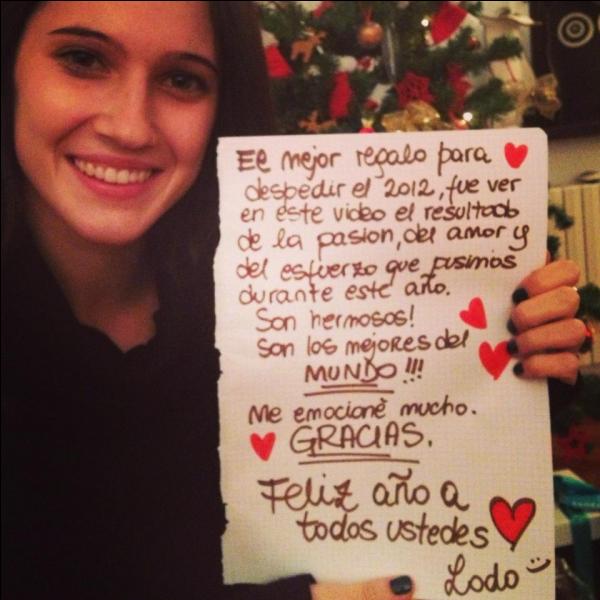 El mejor regalo para
despedir el 2012, fue ver
en este video el resultado
de la pasion, del amor y
del esfuerzo que pusimos
durante este año.
Son hermosos!
Son los mejores del
MUNDO!!!
Me emocionè mucho.
GRACIAS.
Feliz año a
todos ustedes
Lodo